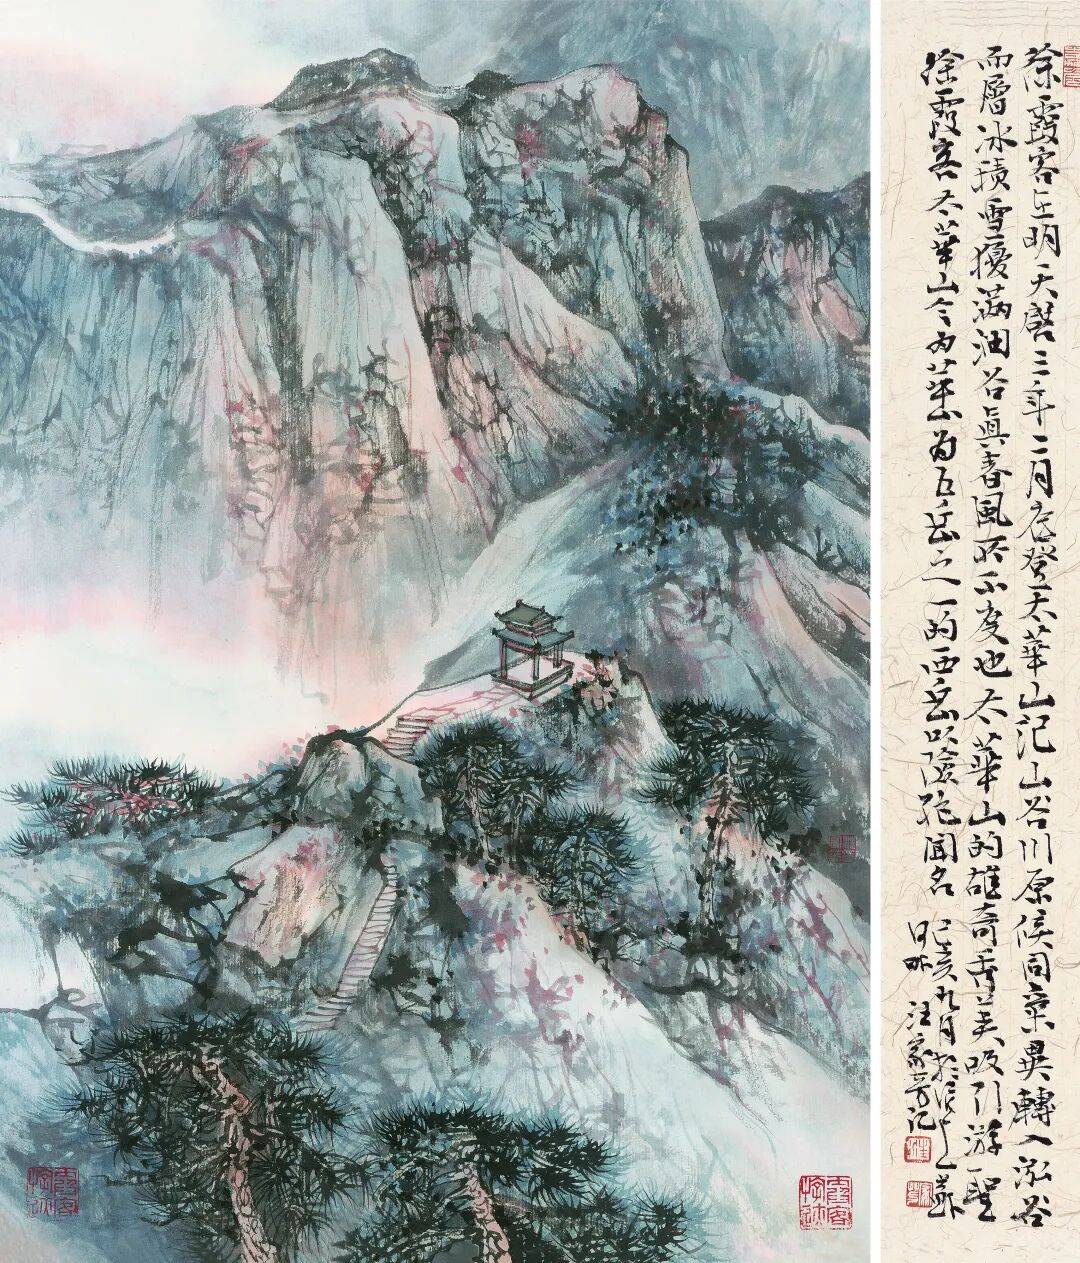 徐霞客在明天啓三年二月底登太華山记山谷川原候同氣異轉入泓谷
而層冰積雪擾满谷眞春風所不度也太華山的雄奇秀美吸引游聖
徐霞客太華山今为華山为五岳之一的西岳以險闻名
己亥九月於滬上
汪家芳记